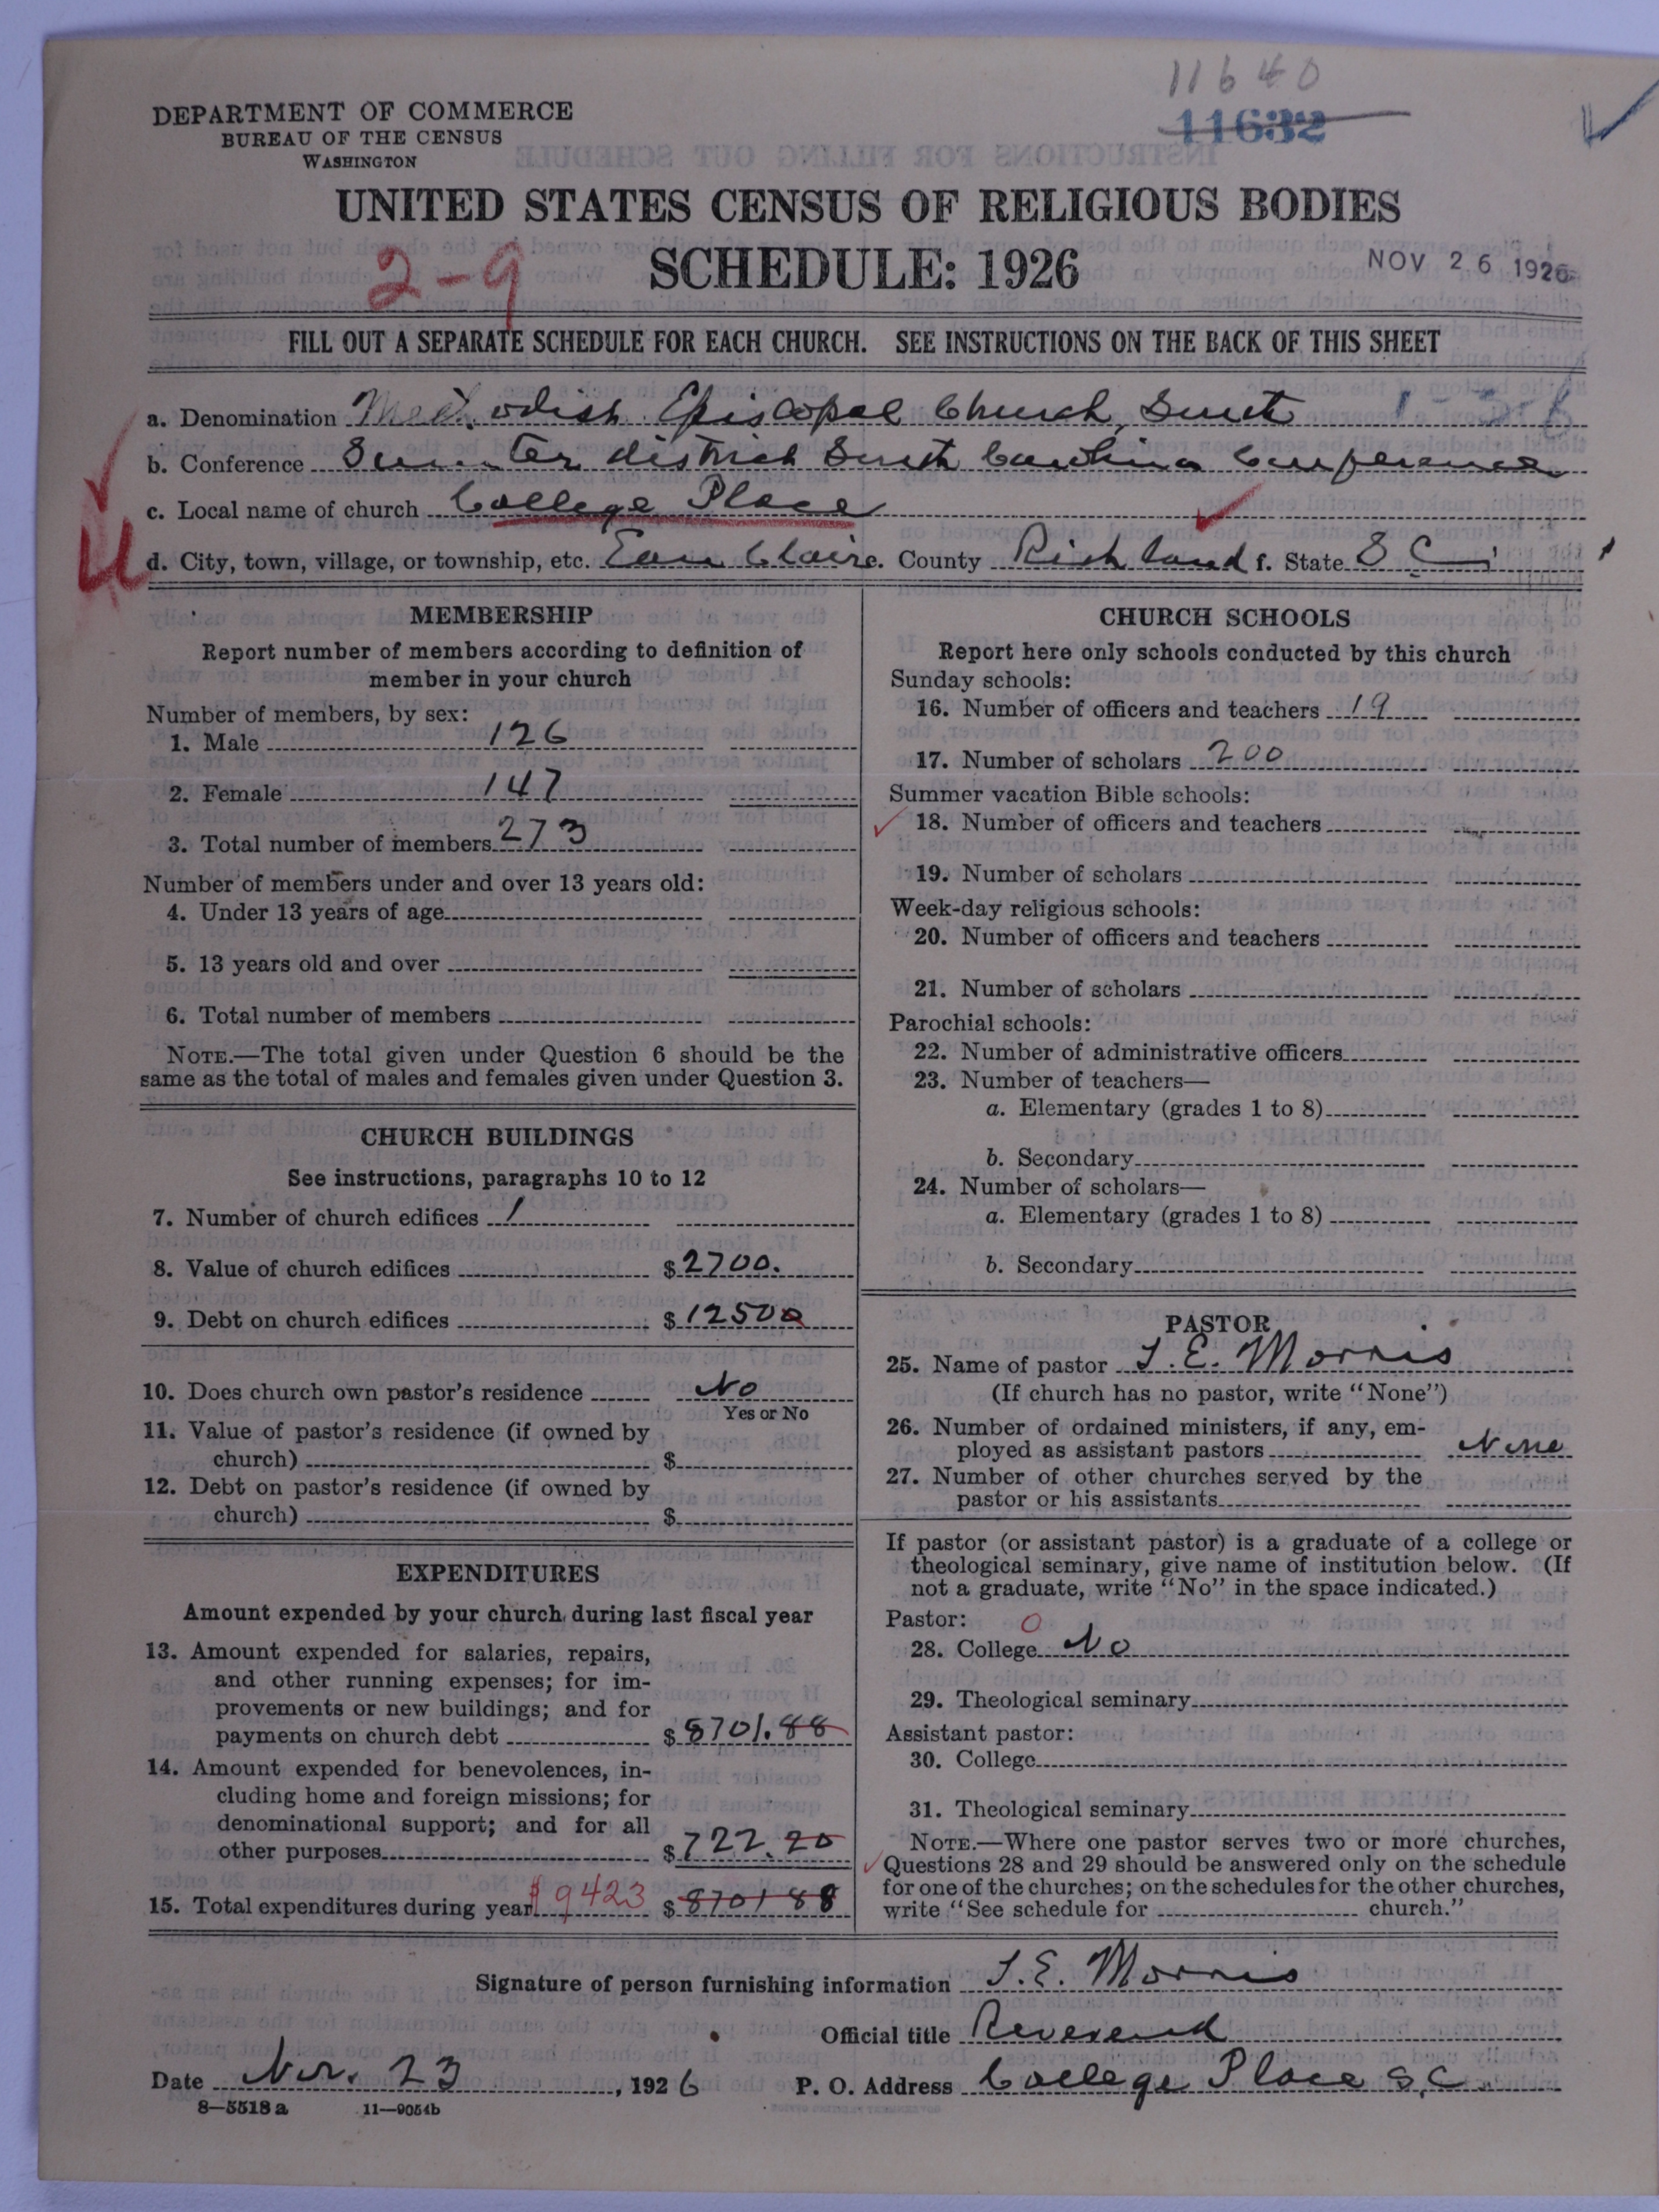 11640
11632
DEPARTMENT OF COMMERCE
BUREAU OF THE CENSUS
WASHINGTON
UNITED STATES CENSUS OF RELIGIOUS BODIES
2-9
SCHEDULE: 1926
NOV 26 1926
FILL OUT A SEPARATE SCHEDULE FOR EACH CHURCH. SEE INSTRUCTIONS ON THE BACK OF THIS SHEET
a. Denomination Methodish Episcopal Church, South
b. Conference Sumter district South Carolina Conference
c. Local name of church College Place
d. City, town, village, or township, etc. Eau Claire. County Richland f. State S C
MEMBERSHIP
Report number of members according to definition of
member in your church
Number of members, by sex:
1. Male 126
2. Female 147
3. Total number of members 273
Number of members under and over 13 years old:
4. Under 13 years of age
5. 13 years old and over
6. Total number of members
NOTE.—The total given under Question 6 should be the
same as the total of males and females given under Question 3.
CHURCH BUILDINGS
See instructions, paragraphs 10 to 12
7. Number of church edifices 1
8. Value of church edifices $ 2700.
9. Debt on church edifices $ 12500
10. Does church own pastor's residence No
Yes or No
11. Value of pastor's residence (if owned by
church) $
12. Debt on pastor's residence (if owned by
church) $
EXPENDITURES
Amount expended by your church during last fiscal year
13. Amount expended for salaries, repairs,
and other running expenses; for im-
provements or new buildings; and for
payments on church debt $ 8701.88
14. Amount expended for benevolences, in-
cluding home and foreign missions; for
denominational support; and for all
other purposes $ 722.20
15. Total expenditures during year $9423 $ 8701 88
CHURCH SCHOOLS
Report here only schools conducted by this church
Sunday schools:
16. Number of officers and teachers 19
17. Number of scholars 200
Summer vacation Bible schools:
18. Number of officers and teachers
19. Number of scholars
Week-day religious schools:
20. Number of officers and teachers
21. Number of scholars
Parochial schools:
22. Number of administrative officers
23. Number of teachers—
a. Elementary (grades 1 to 8)
b. Secondary
24. Number of scholars—
a. Elementary (grades 1 to 8)
b. Secondary
PASTOR
25. Name of pastor J. E. Morris
(If church has no pastor, write "None")
26. Number of ordained ministers, if any, em-
ployed as assistant pastors None
27. Number of other churches served by the
pastor or his assistants
If pastor (or assistant pastor) is a graduate of a college or
theological seminary, give name of institution below. (If
not a graduate, write "No" in the space indicated.)
Pastor: 0
28. College No
29. Theological seminary
Assistant pastor:
30. College
31. Theological seminary
NOTE.—Where one pastor serves two or more churches,
Questions 28 and 29 should be answered only on the schedule
for one of the churches; on the schedules for the other churches,
write "See schedule for church."
Signature of person furnishing information J. E. Morris
Official title Reverend
Date Nov. 23, 1926 P. O. Address College Place S.C.
8—5518a 11—9054b